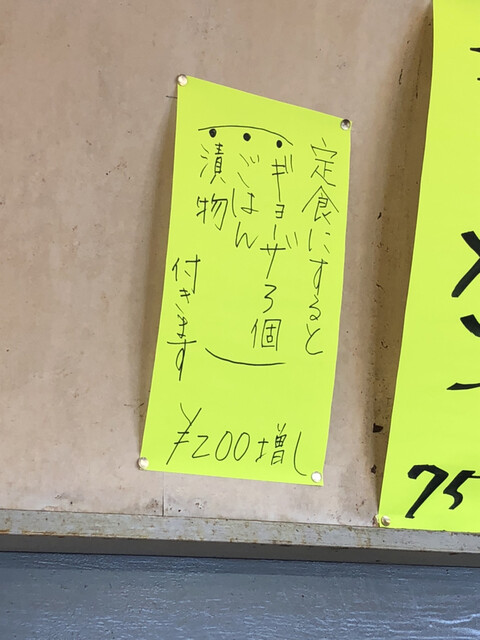 定食にすると
・ギョーザ3個
・ごはん
・漬物
付きます
¥200増し
75